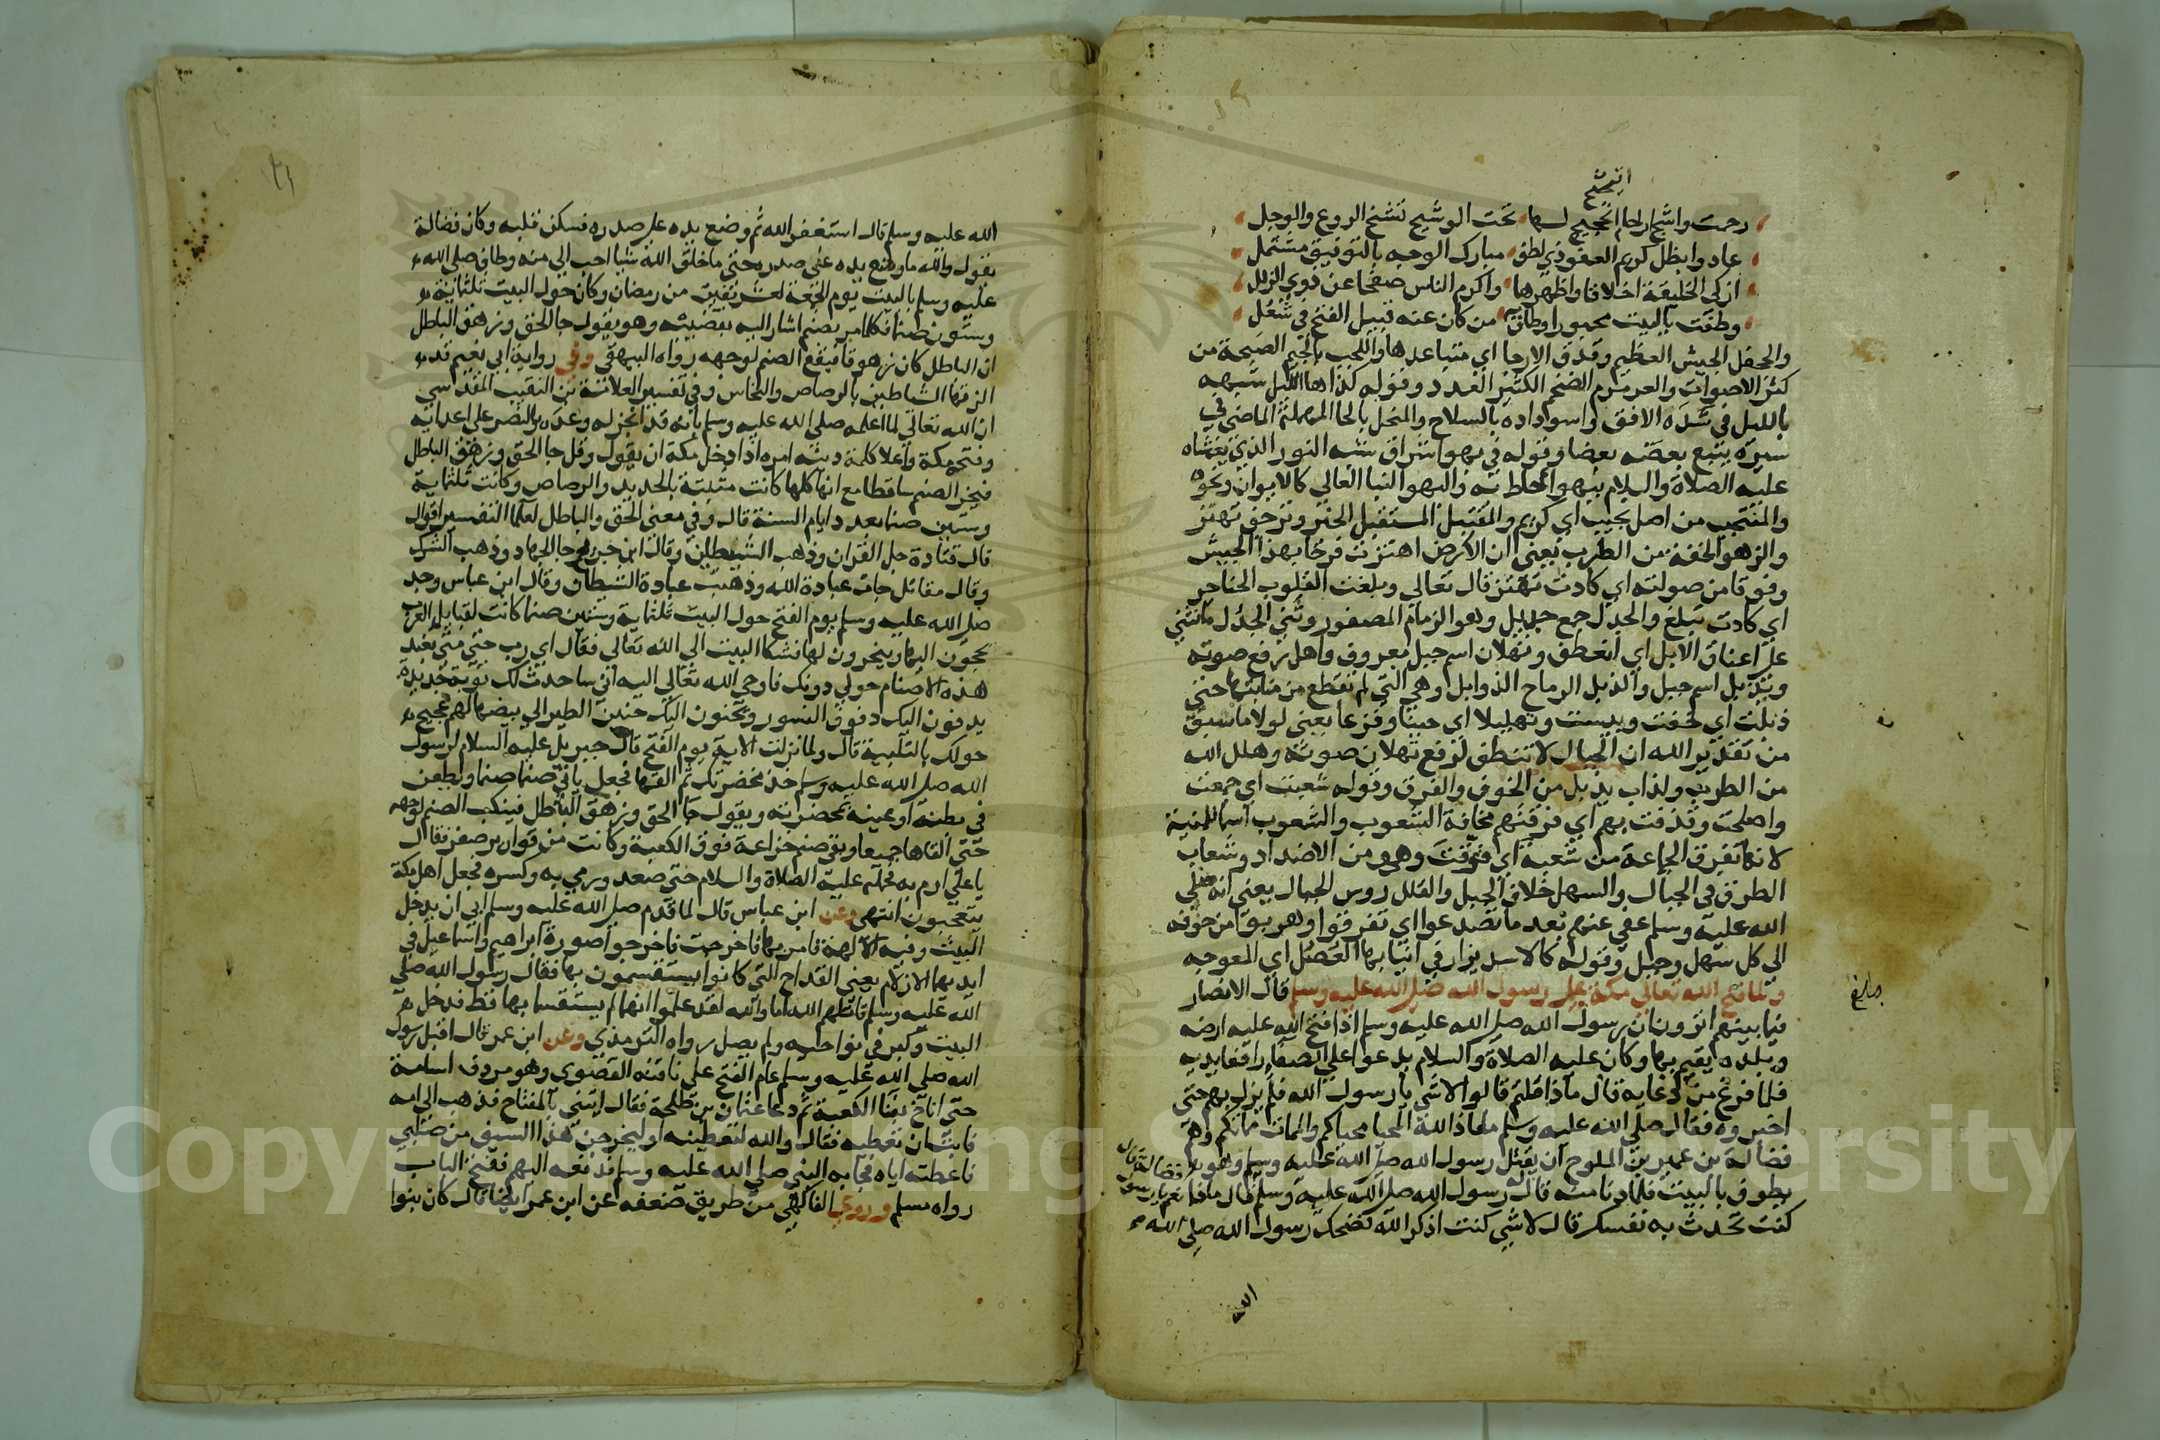 انشج
رحمت واشج ارحام اتيح لها تحت الوشيج نشيج الروع والوجل
عاذوا بظل كريم العفو ذي لطف مبارك الوجه بالتوفيق مشتمل
ازكى الخليقة اخلاقا واطهرها واكرم الناس صفحا عن ذوي الزلل
وطفت بالبيت محبورا وطاف به من كان عنه قبيل الفتح في شغل
والجحفل الجيش العظيم وقذف الارجا اي متباعدها واللجب بالجيم الضجة من
كثرة الاصوات والعرمرم الضخم الكثير العدد وقوله كذا هاء الليل شبهه
بالليل في سده الافق لاسوداده بالسلاح والمنحل بالحا المهملة الماضي في
سيره يتبع بعضه بعضا وقوله في بهو اشراق شبه النور الذي يغشاه
عليه الصلاة والسلام ببهو احاط به والبهو البنا العالي كالايوان ونحوه
والمنتجب من اصل نجيب اي كريم والمقتبل المستقبل الخير وترجف تهتز
والزهو الخفة من الطرب يعني ان الارض اهتزت فرحا بهذا الجيش
وفرقا من صولته اي كادت تهتز قال تعالى وبلغت القلوب الحناجر
اي كادت تبلغ والجدل جمع جديل وهو الزمام المضفور وثني الجدل ما نثني
على اعناق الابل اي انعطف وثهلان اسم جبل معروف واهل رفع صوته
ويذبل اسم جبل والذبل الرماح الذوابل وهي التي لم تقطع من منابتها حتى
ذبلت اي جفت ويبست وتهليلا اي جبنا وفزعا يعني لولا ما سبق
من تقدير الله ان الجبال لا تنطق لرفع ثهلان صوته وهلل الله
من الطرب ولذاب يذبل من الخوف والفرق وقوله شعبت اي جمعت
واصلحت وقذفت بهم اي فرقتهم مخافة الشعوب والشعوب اسم للمنية
لانها تفرق الجماعة من شعبه اي فرقت وهو من الاضداد وشعاب
الطرق في الجبال والسهل خلاف الجبل والقلل روس الجبال يعني انه صلى
الله عليه وسلم عفى عنهم بعد ما تصدعوا اي تفرقوا وهربوا من خوفه
الى كل سهل وجبل وقوله كالاسد تزار في انيابها العصل اي المعوجه
ولما فتح الله تعالى مكة على رسول الله صلى الله عليه وسلم قال الانصار
فيما بينهم اترون ان رسول الله صلى الله عليه وسلم اذا فتح الله عليه ارضه
وبلده يقيم بها وكان عليه الصلاة والسلام يدعو اعلى الصفا رافعا يديه
فلما فرغ من دعايه قال ماذا قلتم قالوا لا شي يا رسول الله فلم يزل بهم حتى
اخبروه فقال صلى الله عليه وسلم معاذ الله المحيا محياكم والممات مماتكم وهم
فضالة بن عمير بن الملوح ان يقتل رسول الله صلى الله عليه وسلم وهو
يطوف بالبيت فلما دنا منه قال رسول الله صلى الله عليه وسلم قال ماذا
كنت تحدث به نفسك قال لا شي كنت اذكر الله فضحك رسول الله صلى الله
الله
الله عليه وسلم قال استغفر الله ثم وضع يده على صدره فسكن قلبه وكان فضالة
يقول والله ما وضع يده على صدري حتى ما خلق الله شيا احب الي منه وطاف صلى الله
عليه وسلم بالبيت يوم الجمعة لعشر بقين من رمضان وكان حول البيت ثلثماية
وستون صنما فكلما مر بصنم اشار اليه بقضيبه وهو يقول جا الحق وزهق الباطل
ان الباطل كان زهوقا فيقع الصنم لوجهه رواه البيهقي وفي رواية ابي نعيم قد
الزقها الشياطين بالرصاص والنحاس وفي تفسير العلامة بن النقيب المقدسي
ان الله تعالى لما اعلمه صلى الله عليه وسلم بانه قد انجز له وعده بالنصر على اعدايه
وفتحه مكة واعلا كلمة دينه امره اذا دخل مكة ان يقول وقل جا الحق وزهق الباطل
فيخر الصنم ساقطا مع انها كلها كانت مثبتة بالحديد والرصاص وكانت ثلثماية
وستين صنما بعدد ايام السنة قال وفي معنى الحق والباطل لعلما التفسير اقوال
قال قتادة جا القران وذهب الشيطان وقال ابن جريج جا الجهاد وذهب الشرك
وقال مقاتل جات عبادة الله وذهبت عبادة الشيطان وقال ابن عباس وجد
صلى الله عليه وسلم يوم الفتح حول البيت ثلثماية وستين صنما كانت لقبايل العرب
يحجون اليها وينحرون لها فشكا البيت الى الله تعالى فقال اي رب حتى متى تعبد
هذه الاصنام حولي دونك فاوحى الله تعالى اليه اني ساحدث لك نوبة جديدة
يدفون اليك دفوف النسور ويحنون اليك حنين الطير الى بيضها لهم عجيج
حولك بالتلبية قال ولما نزلت الاية يوم الفتح قال جبريل عليه السلام لرسول
الله صلى الله عليه وسلم خذ مخصرتك ثم القها فجعل ياتي صنما صنما ويطعن
في بطنه او عينه بمخصرته ويقول جا الحق وزهق الباطل فينكب الصنم لوجهه
حتى القاها جميعا وبقي صنم خزاعة فوق الكعبة وكانت من قوارير صفر فقال
يا علي ارم به فحمله عليه الصلاة والسلام حتى صعد ورمي به وكسره فجعل اهل مكة
يتعجبون انتهى وعن ابن عباس قال لما قدم صلى الله عليه وسلم ابى ان يدخل
البيت وفيه الالهة فامر بها فاخرجت فاخرجوا صورة ابراهيم واسماعيل في
ايديهما الازلام يعني القداح التي كانوا يستقسمون بها فقال رسول الله صلى
الله عليه وسلم قاتلهم الله اما والله لقد علموا انهما لم يستقسما بها قط فدخل
البيت وكبر في نواحيه ولم يصل رواه الترمذي وعن ابن عمر قال اقبل رسول
الله صلى الله عليه وسلم عام الفتح على ناقته القصوى وهو مردف اسامة
حتى اناخ بفنا الكعبة ثم دعا عثمان بن طلحة فقال ايتني بالمفتاح فذهب الى امه
فابت ان تعطيه فقال والله لتعطينه او ليخرجن هذا السيف من صلبي
فاعطته اياه فجا به النبي صلى الله عليه وسلم فدفعه اليهم ففتح الباب
رواه مسلم وروي الفاكهي من طريق ضعفه عن ابن عمر ايضا قال كان بنوا